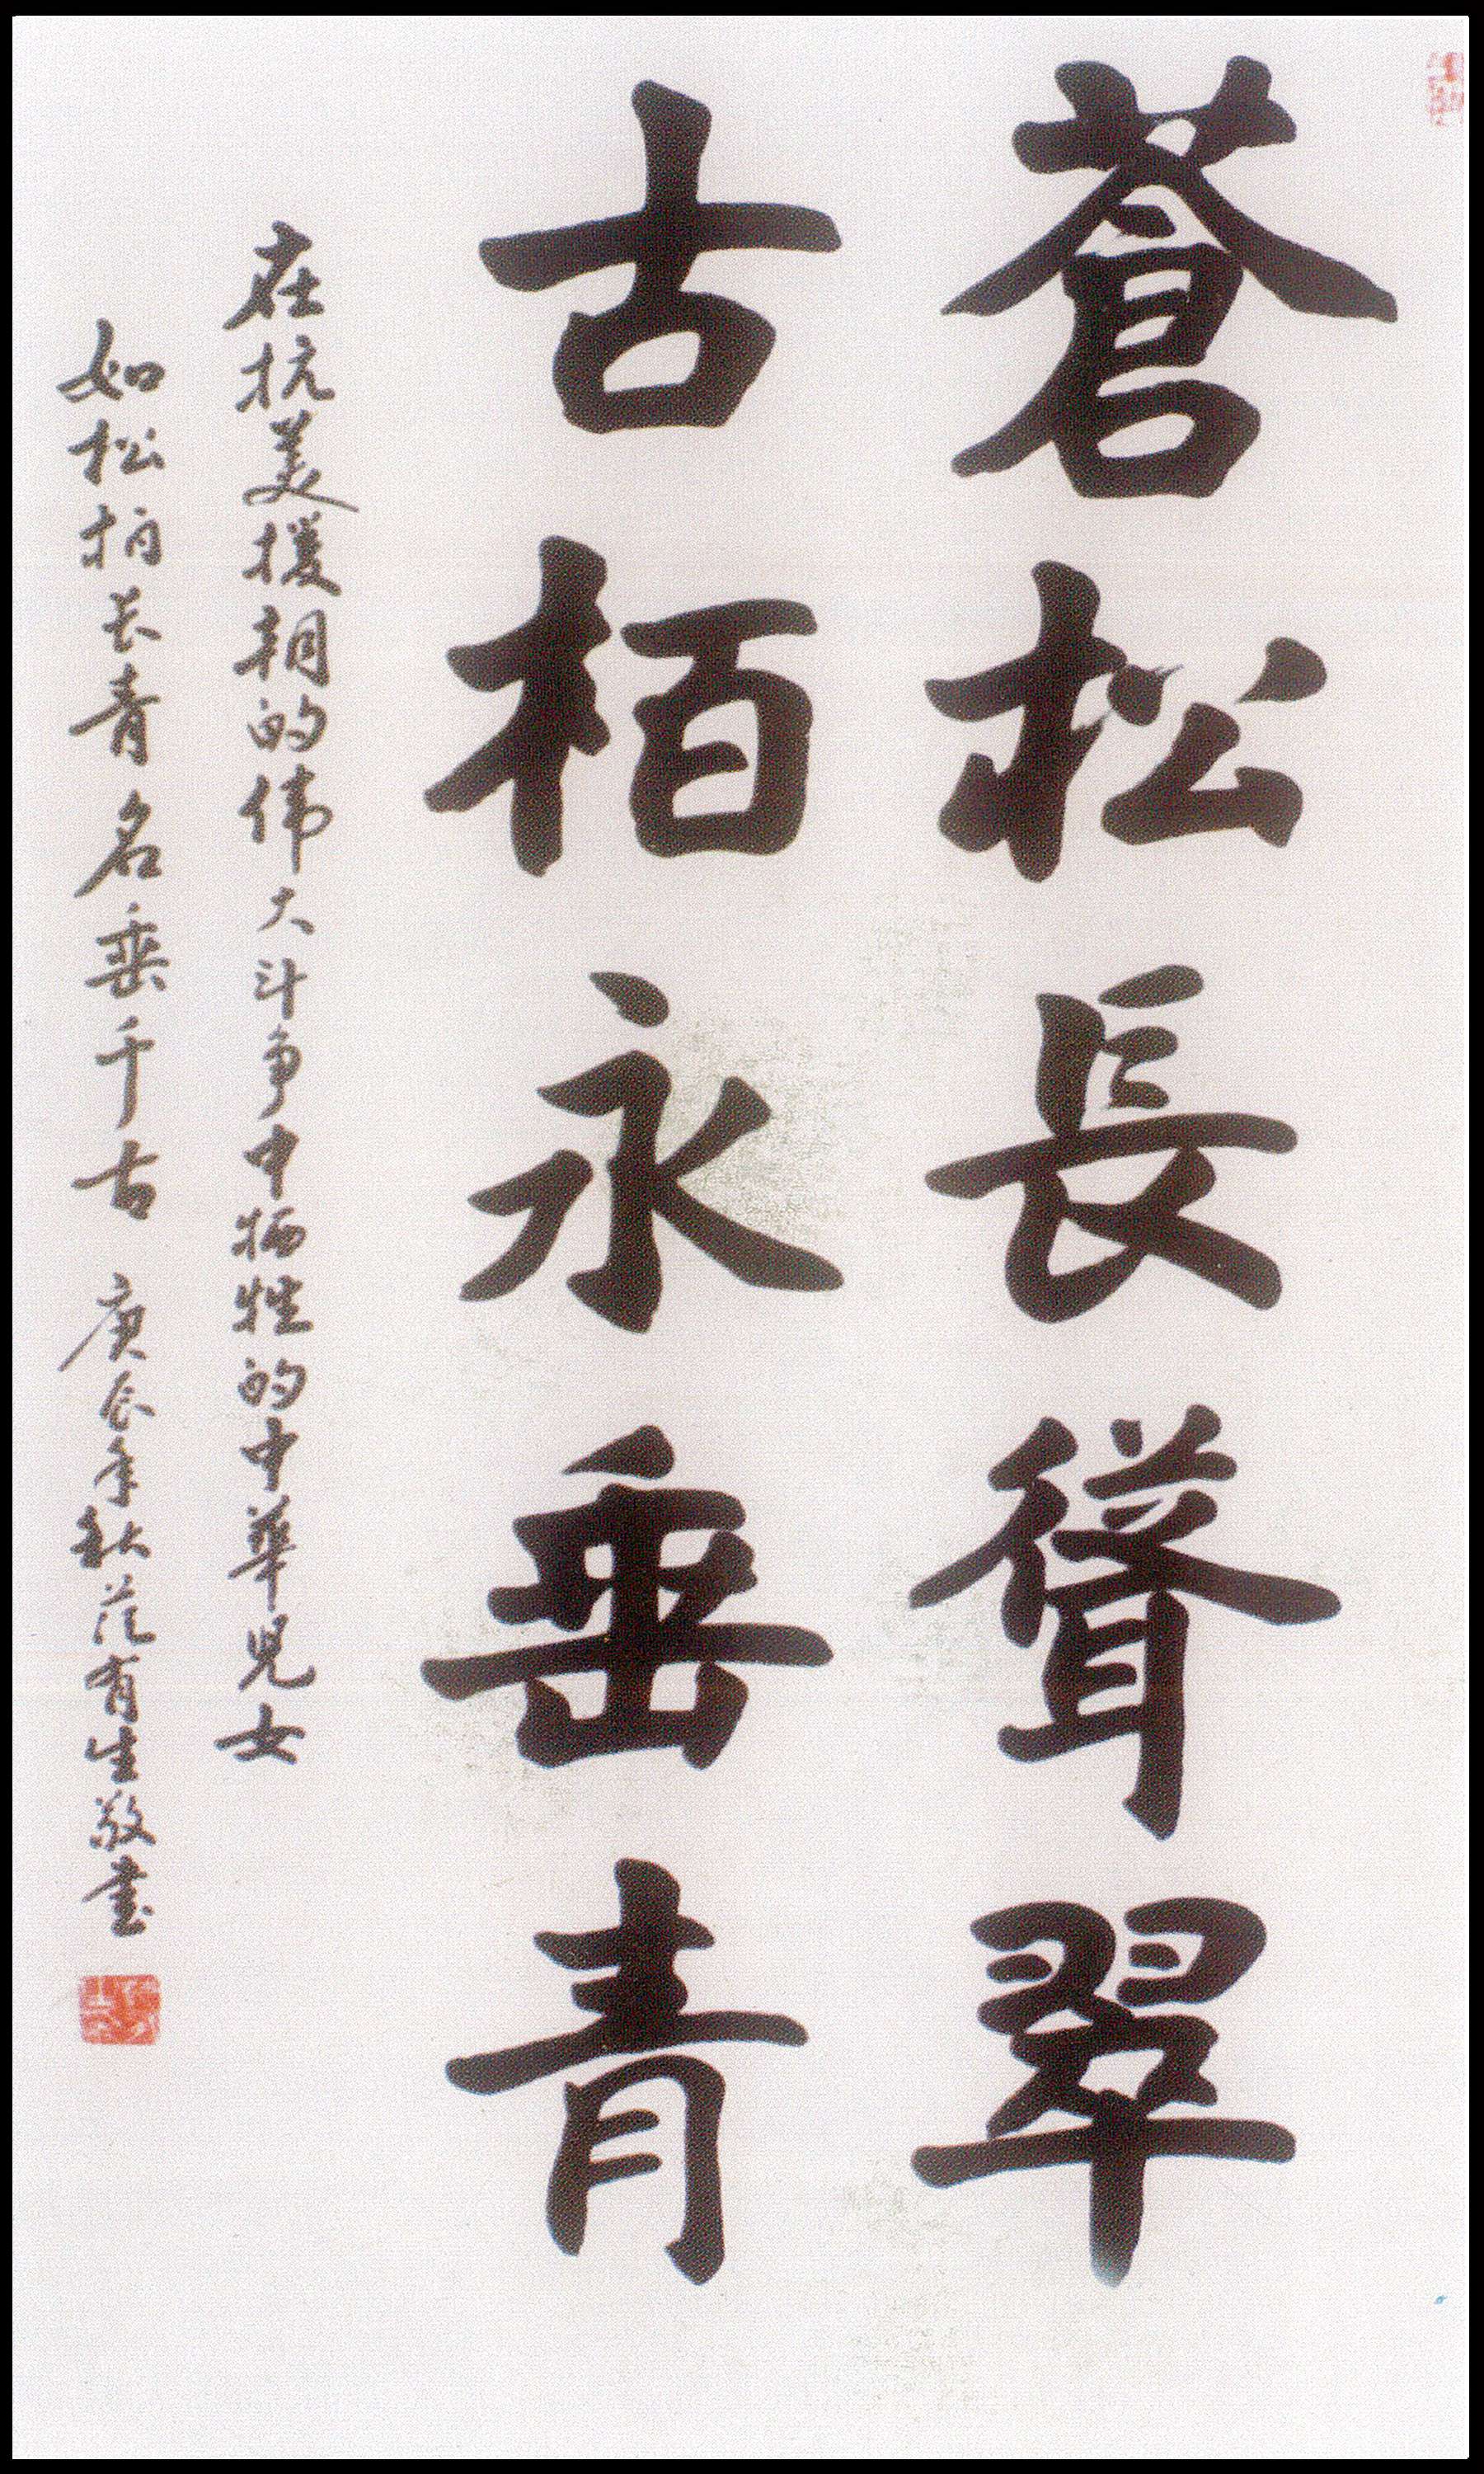 蒼松長聳翠
古栢永垂青
在抗美援朝的伟大斗争中牺牲的中華兒女
如松柏长青名垂千古 庚辰年秋范有生敬書